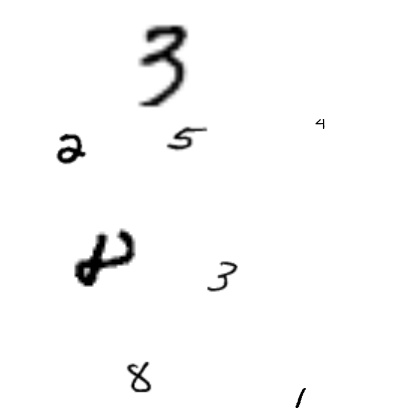 3
2 5 4
8 3
8 1